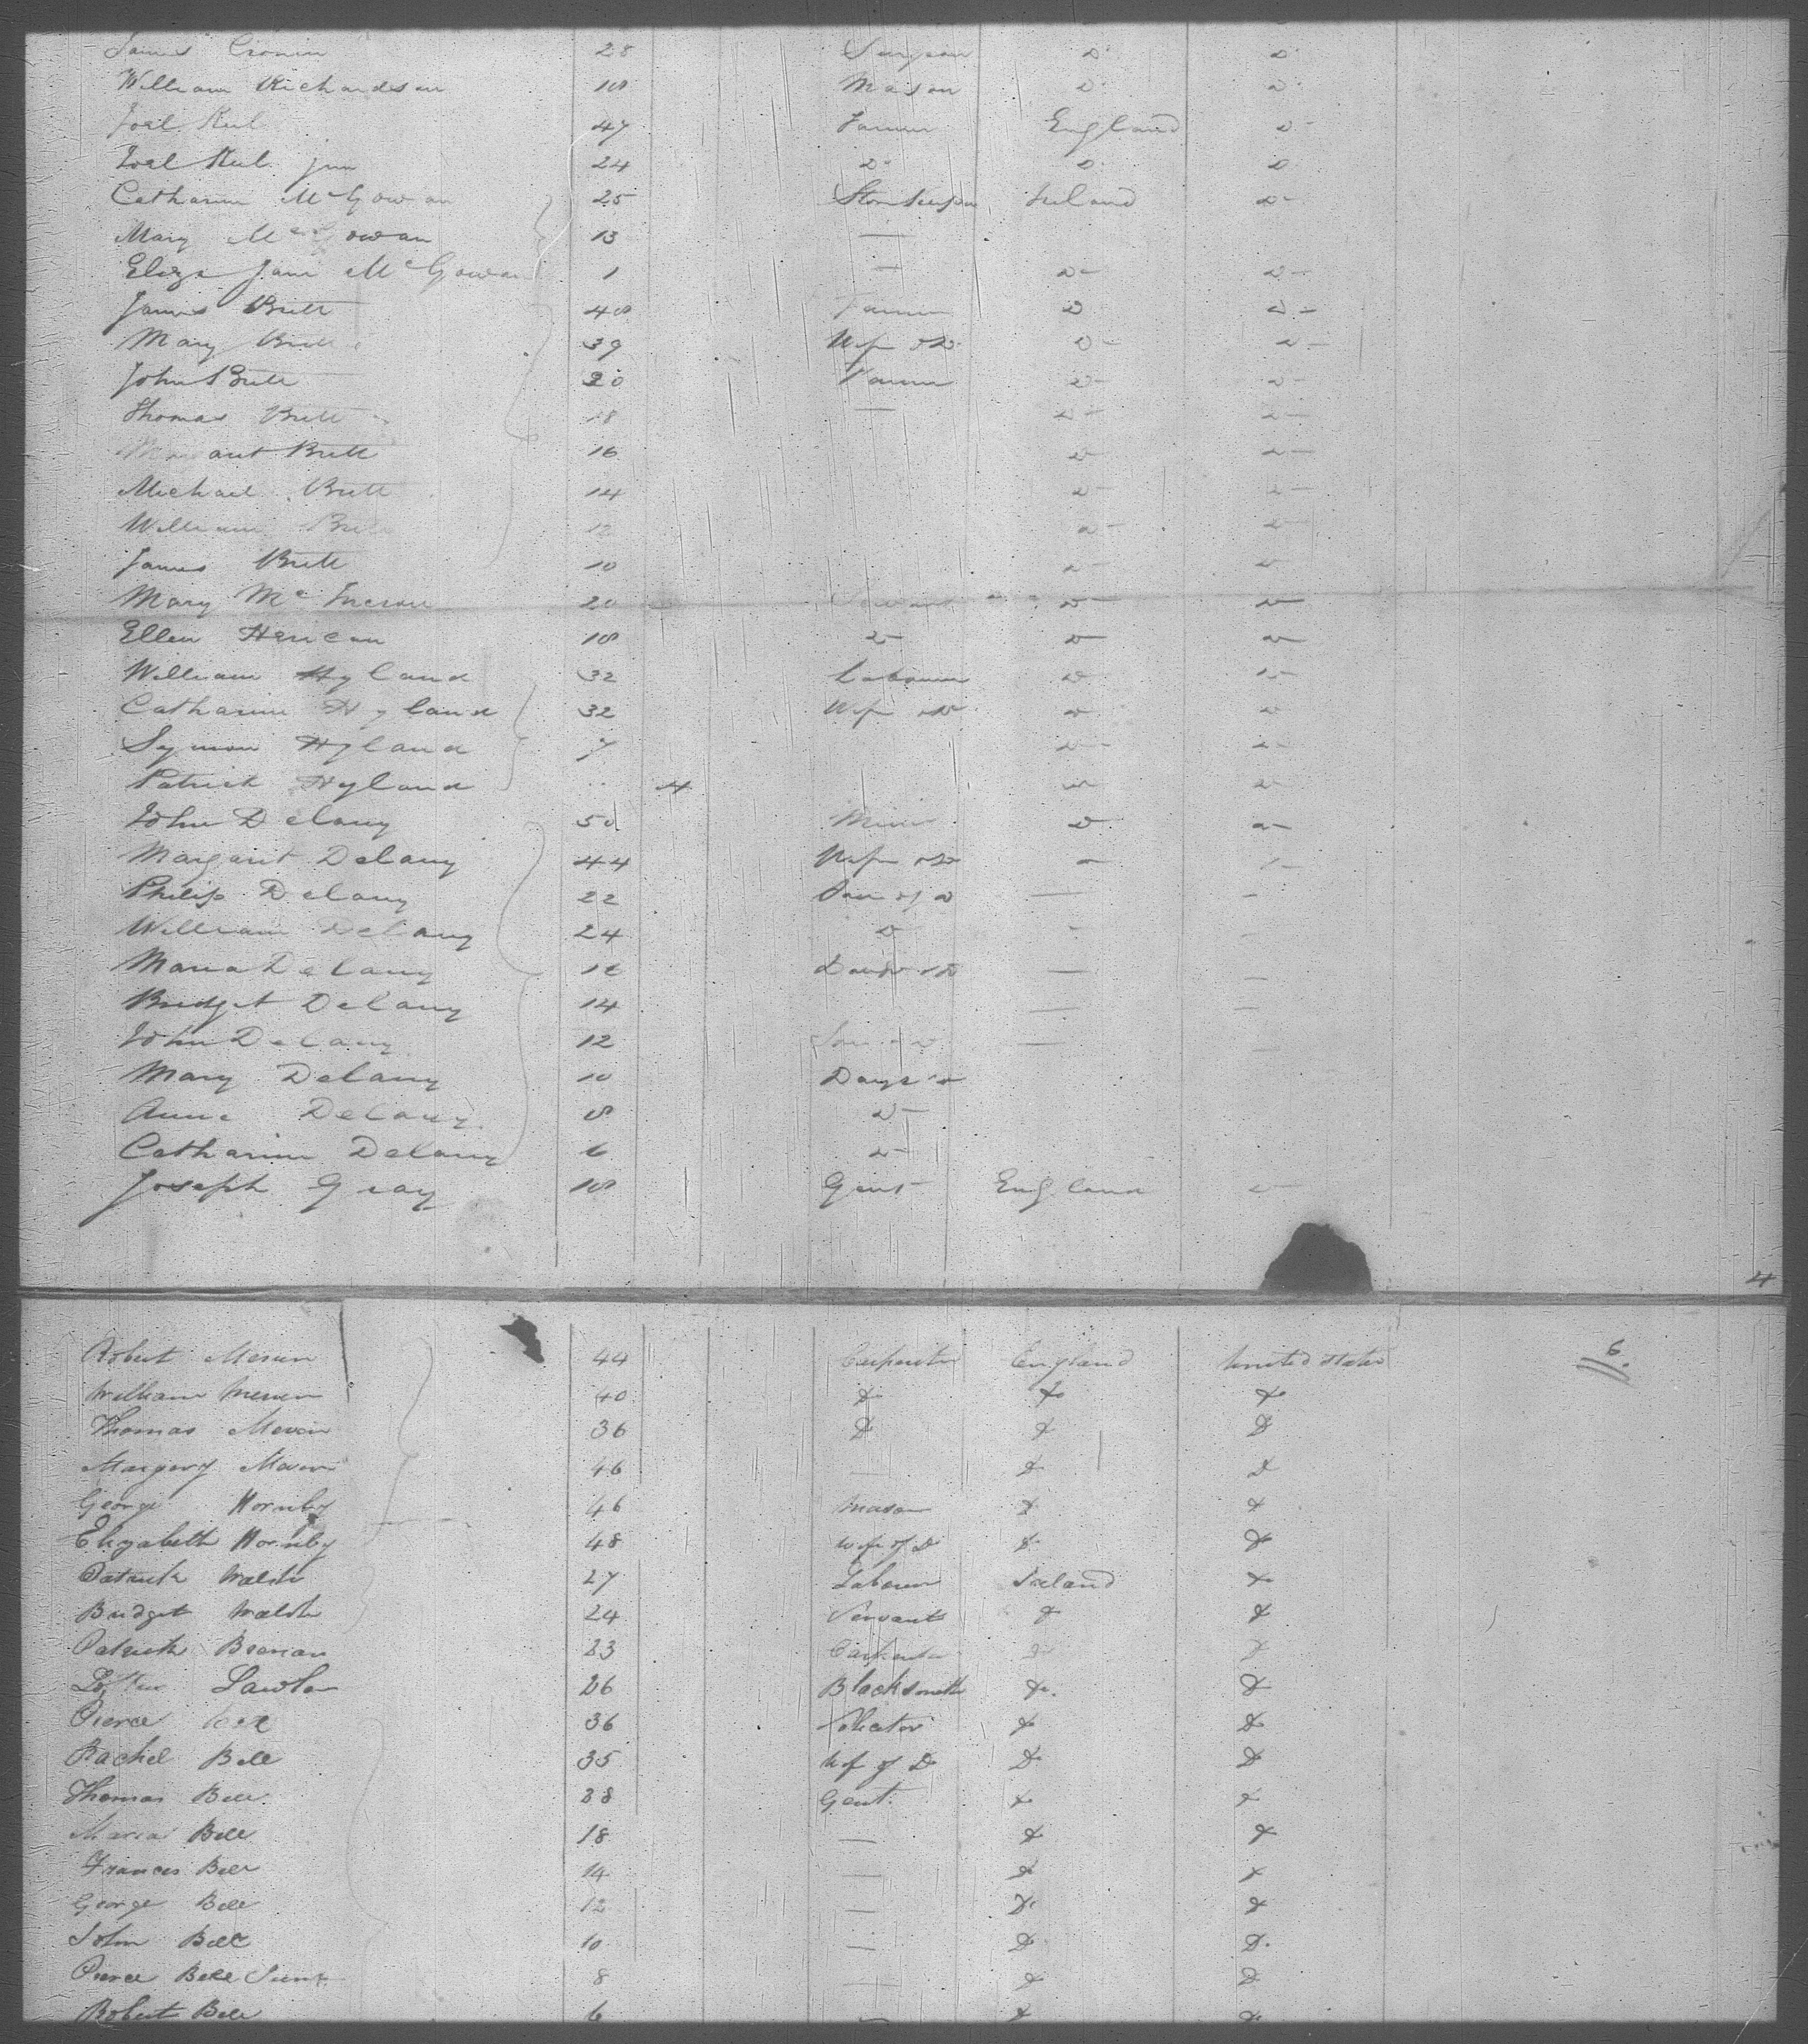 James Cronin 28 Surgeon D° D°
William Richardson 18 Mason D° D°
Joel 47 Farmer England D°
Joel jun 24 D° D° D°
Catharine McGowan 25 Ireland D°
Mary McGowan 13 —
Eliza Jane McGowan 1 — D° D°
James Britt 48 Farmer D° D°
Mary Britt 39 Wife of D° D° D°
John Britt 20 Farmer D° D°
Thomas Britt 18 — D° D°
Margaret Britt 16 D° D°
Michael Britt 14 D° D°
William Britt 12 D° D°
James Britt 10 D° D°
Mary Mc 20 Servant D° D°
Ellen 18 D° D° D°
William Hyland 32 Labourer D° D°
Catharine Hyland 32 Wife of D° D° D°
Symon Hyland 7 D° D°
Patrick Hyland .. 4 D° D°
John Delany 50 D° D°
Margaret Delany 44 Wife of D° — —
Philip Delany 22 Son of D — —
William Delany 24 D° - -
Maria Delany — —
Bridget Delany 14 — —
John Delany 12 Son of D — —
Mary Delany 10 D
Anne Delany 8 D°
Catharine Delany 6 D°
Joseph Gray 18 Gent England D°
4
6.
Robert 44 Carpenter England United States
William 40 D° D° D°
Thomas 36 D° D° D
Margery 46 — D D
George Hornby 46 Mason D° D°
Elizabeth Hornby 48 Wife of D D° D°
Patrick Walsh 27 Labourer Ireland D°
Bridget Walsh 24 Servant D° D°
Patrick 23 Carpenter D° D°
Lawlor 26 Blacksmith D°. D°
Pierce Bell 36 D° D°
Rachel Bell 35 Wife of D° D° D°
Thomas Bell 28 Gent. D° D°
Maria Bell 18 — D° D°
Frances Bell 14 — D° D°
George Bell 12 — D° D°
John Bell 10 — D° D°
Pierce Bell 8 — D° D°
Robert Bell 6 — D° D°